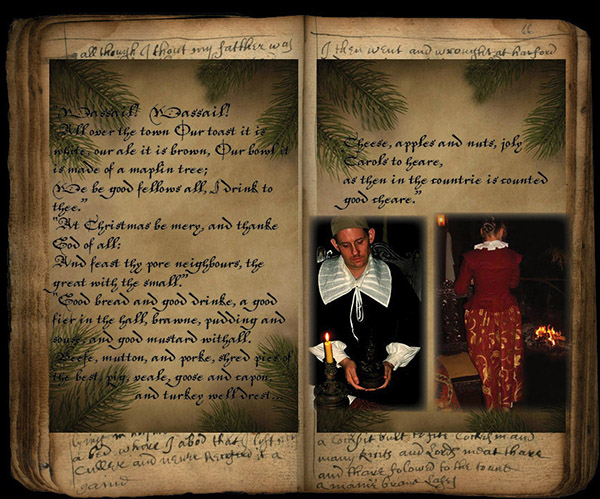 all though I thout my fatther was
Wassail! Wassail!
All over the town Our toast it is
white, our ale it is brown, Our bowl it
is made of a maplin tree;
We be good fellows all, I drink to
thee."
"At Christmas be mery, and thanke
God of all:
And feast thy pore neighbours, the
great with the small."
"Good bread and good drinke, a good
fier in the hall, brawne, pudding and
souse, and good mustard withall.
Beefe, mutton, and porke, shred pies of
the best, pig, veale, goose and capon,
and turkey well drest...
a bed where I abod that
and never
I then went and wrought at
Cheese, apples and nuts, joly
Carols to heare,
as then in the countrie is counted
good cheare."
built
many knits and Lords meat thare
and thare folowed to the
a many brave